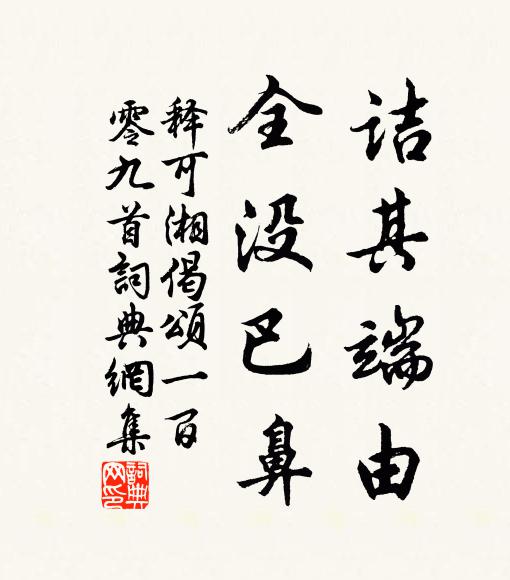 诘其端由
全没巴鼻
释可湘偈頌一百
零九首詞典網集
詞典网印